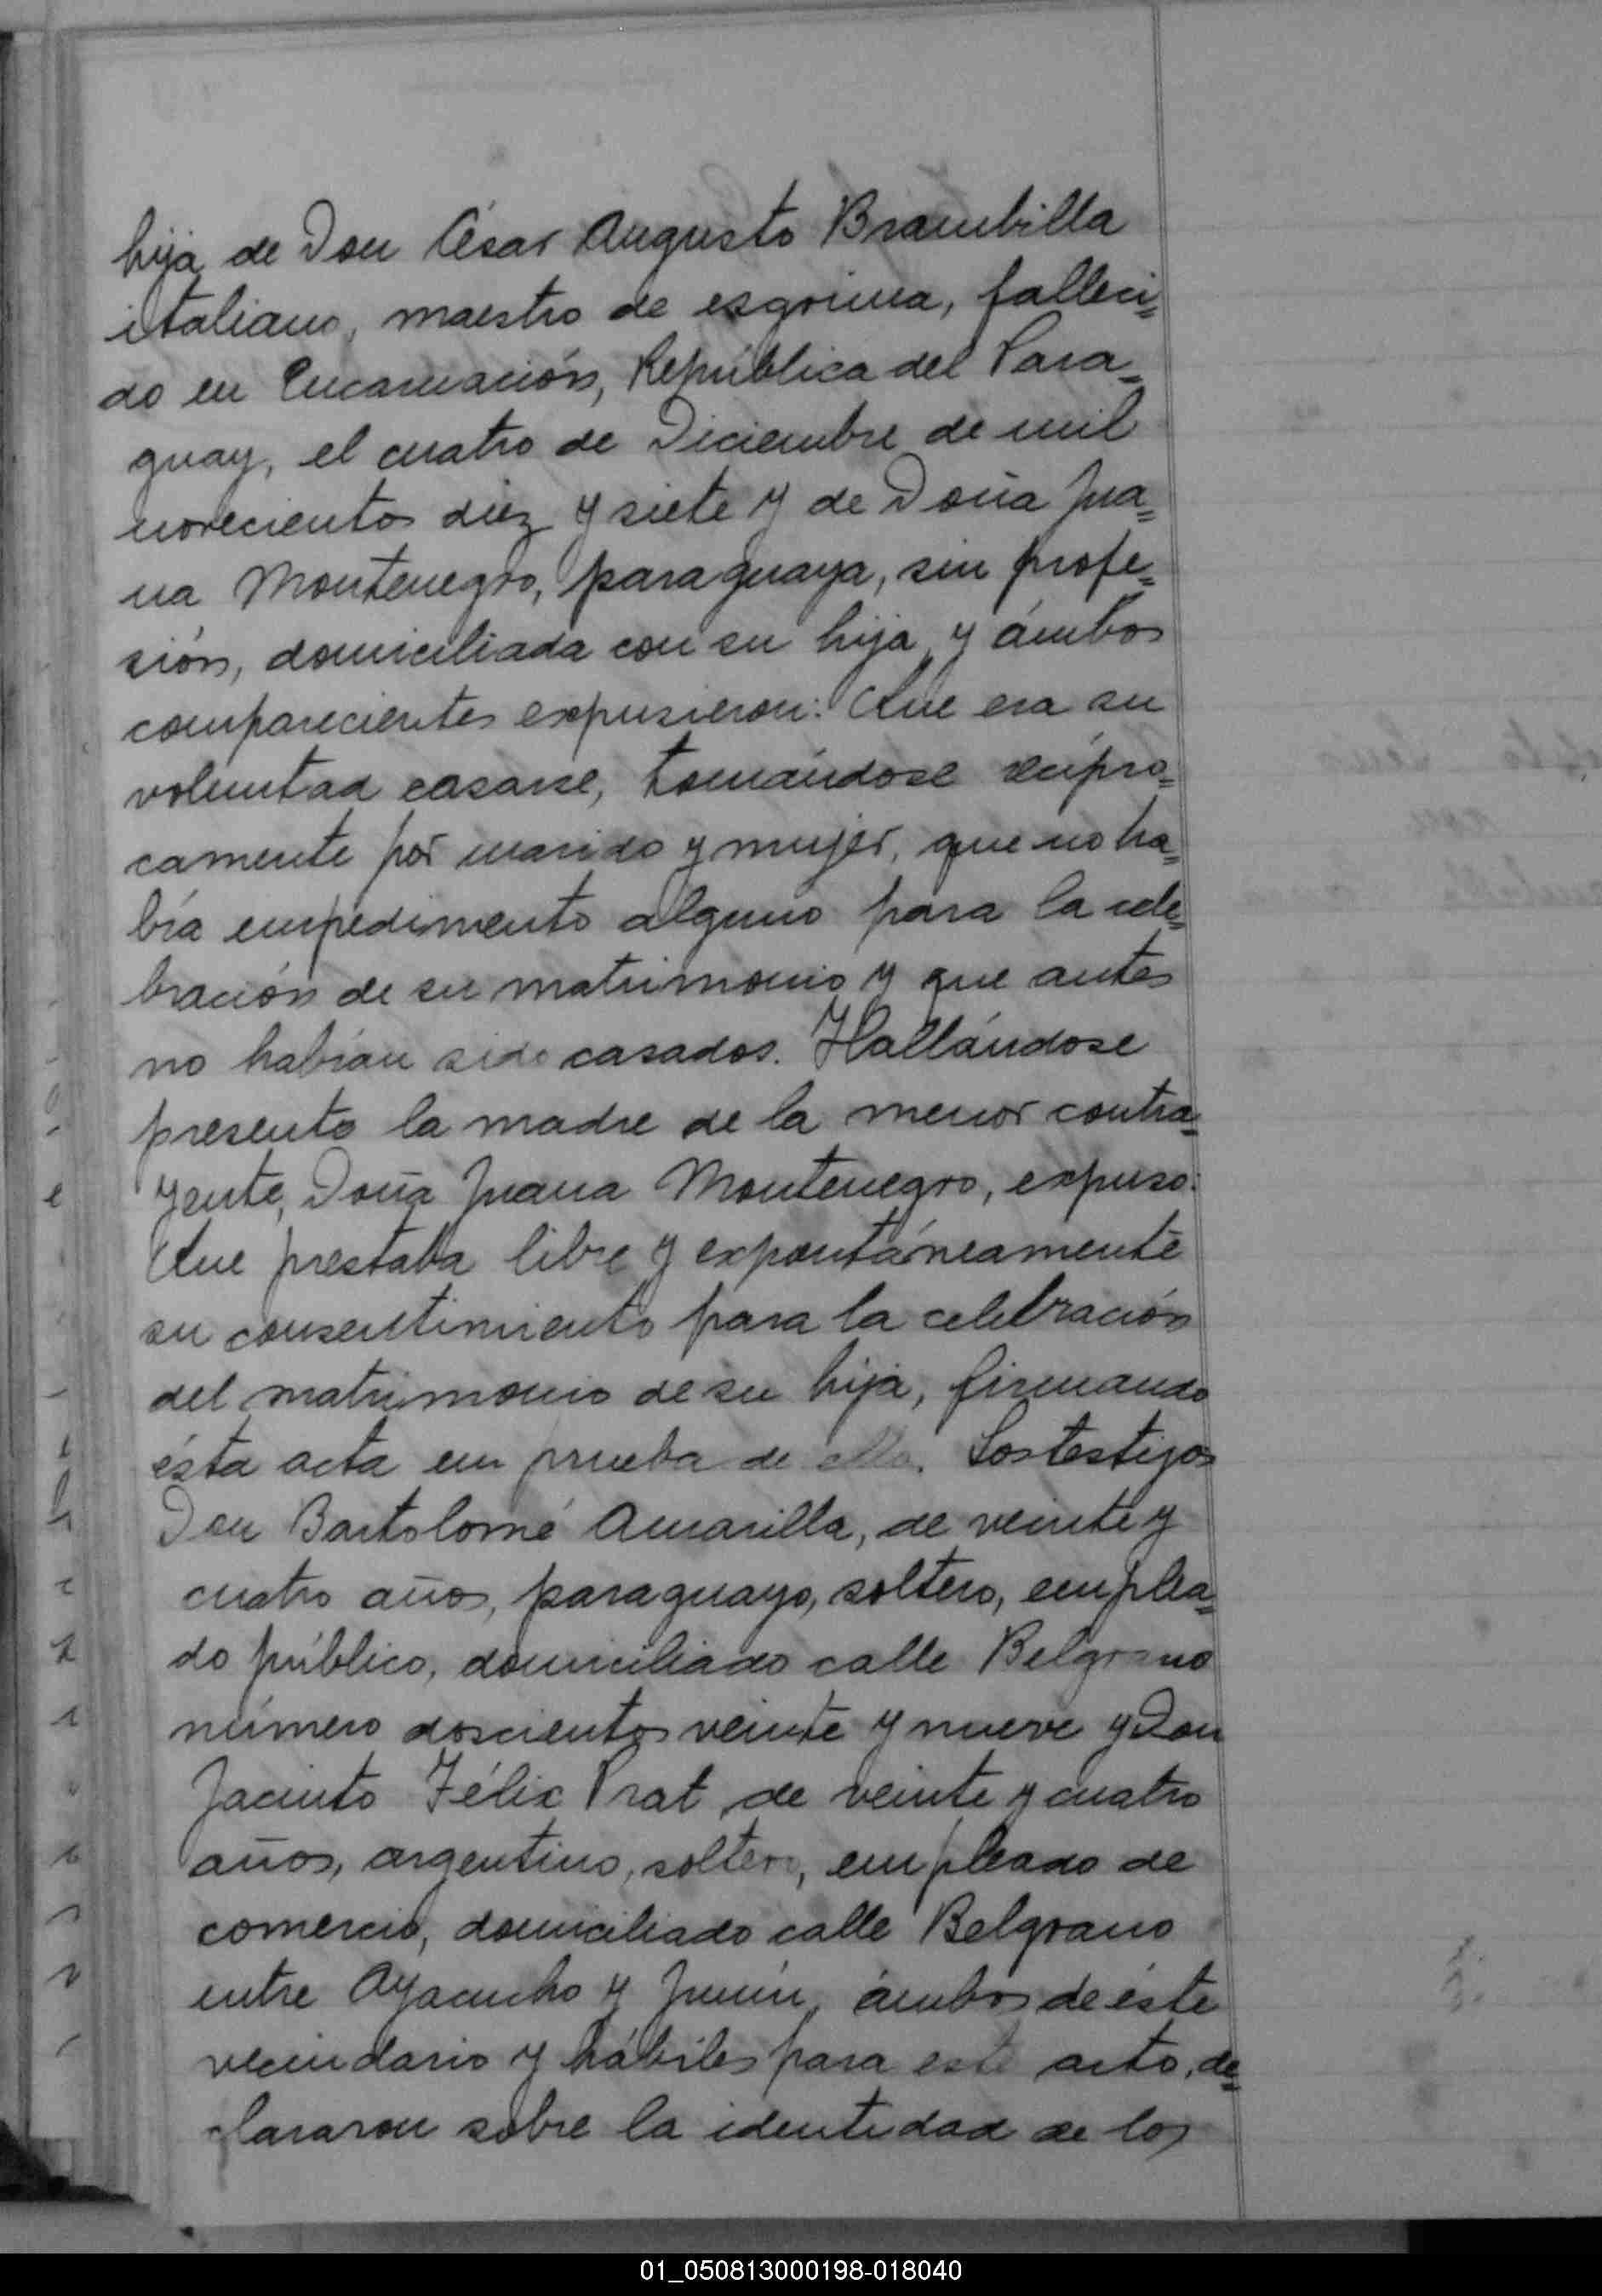 hija de Don César Augusto Brambilla
italiano, maestro de esgrima, falleci=
do en Encarnación, República del Para=
guay, el cuatro de Diciembre de mil
novecientos diez y siete y de Doña Jua=
na Montenegro, paraguaya, sin profe=
sión, domiciliada con su hija y ámbos
comparecientes expusieron: Que era su
voluntad casarse, tomándose recípro=
camente por marido y mujer, que no ha=
bía empedimento alguno para la cele=
bración de su matrimonio y que antes
no habían sido casados. Hallándose
presente la madre de la menor contra=
yente, Doña Juana Montenegro, expuso:
Que prestaba libre y expontáneamente
su consentimiento para la celebración
del matrimonio de su hija, firmando
ésta acta en prueba de ello. Los testigos
Don Bartolomé Amarilla, de veinte y
cuatro años, paraguayo, soltero, emplea=
do público, domiciliado calle Belgrano
número doscientos veinte y nueve y Don
Jacinto Félix Prat, de veinte y cuatro
años, argentino, soltero, empleado de
comercio, domiciliado calle Belgrano
entre Ayacucho y Junín, ámbos de éste
vecindario y hábiles para este acto, de=
clararon sobre la identidad de los
01_050813000198-018040